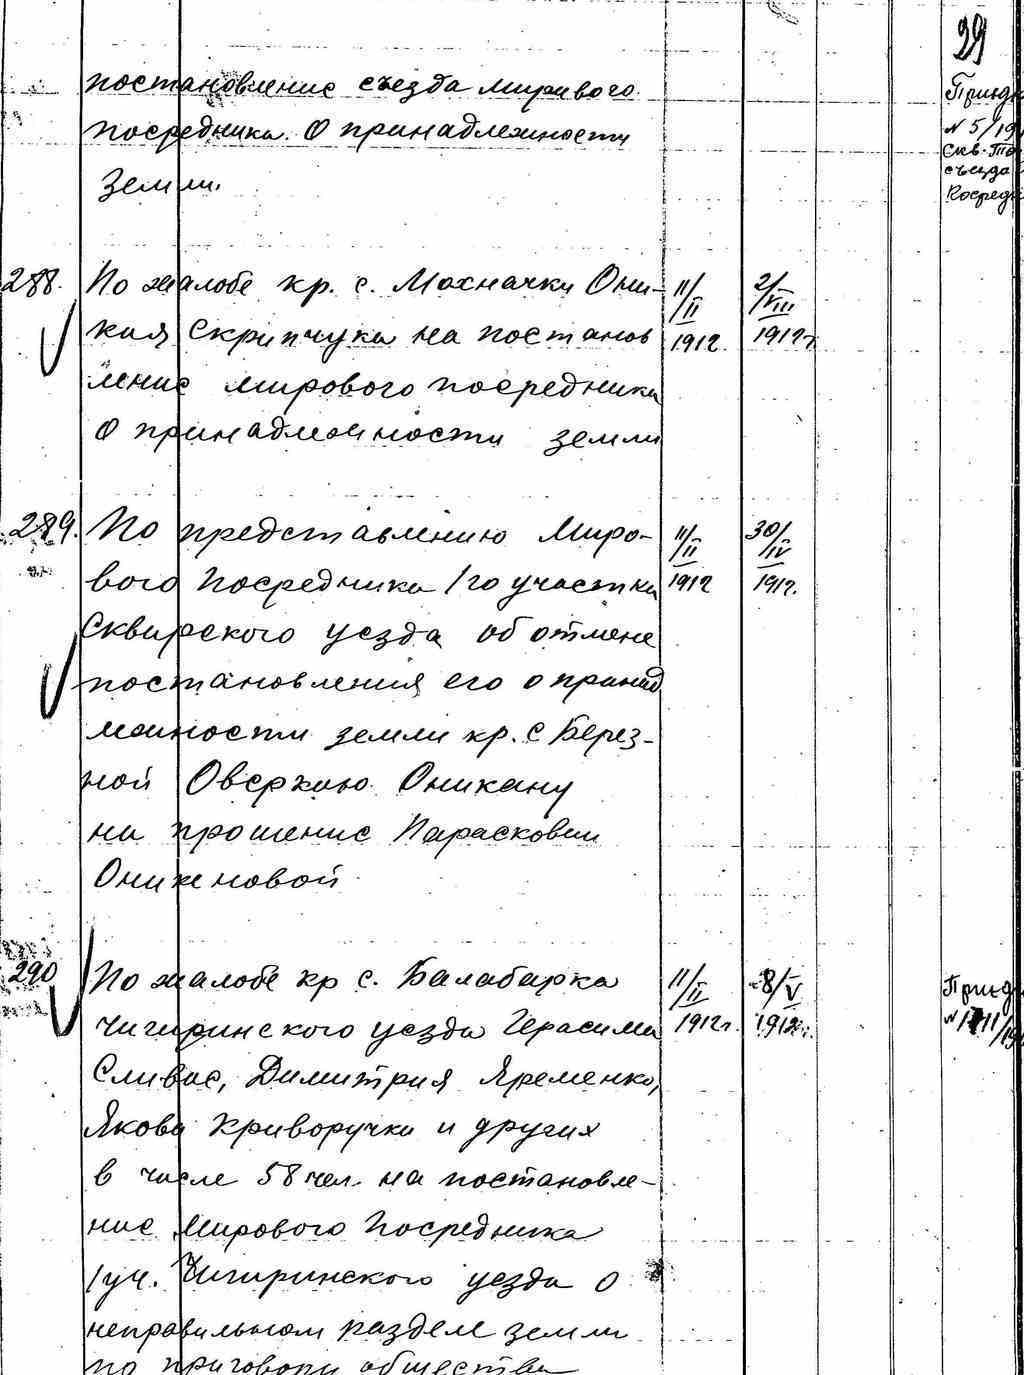 29
постановление съезда мирового
посредника. О принадлежности
земли.
288. По жалобе кр. с. Мохначки Они-
кия Скрипчука на постанов
ление мирового посредника
о принадлежности земли
11/II 1912
2/VIII 1912 г.
289. По представлению Миро-
вого Посредника 1го участка
Сквирского уезда об отмене
постановления его о принад
лежности земли кр. с Берез-
ной Оверкию
на прошение Парасковии
11/II 1912
30/IV 1912.
290 По жалобе кр с. Балабарка
Чигиринского уезда Герасима
Сливас, Димитрия Яременко,
Якова Криворучки и других
в числе 58 чел. на постановле-
ние Мирового Посредника
1 уч. Чигиринского уезда о
неправильном разделе земли
по приговору общества
11/II 1912 г.
8/V 1912 г.
N 5/19
съезда